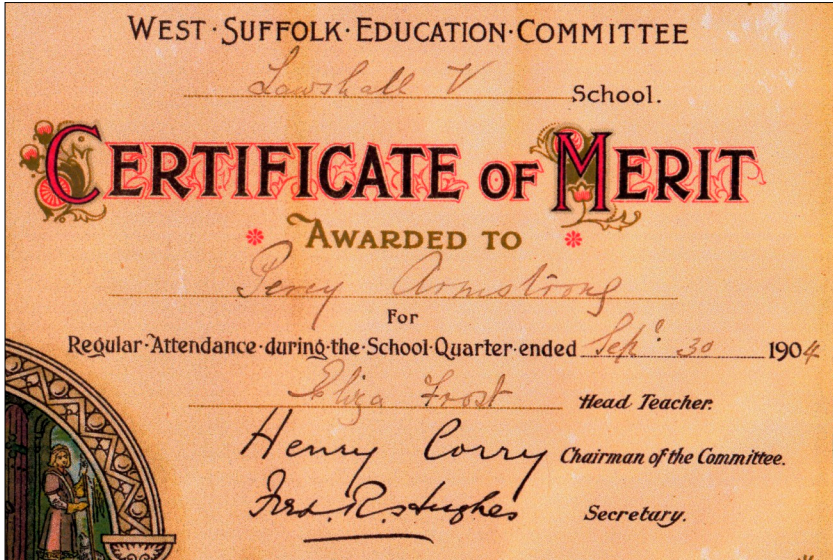 WEST·SUFFOLK·EDUCATION·COMMITTEE
Lawshall V School.
CERTIFICATE OF MERIT
AWARDED TO
Percy Armstrong
For
Regular·Attendance·during·the·School·Quarter·ended Sept 30 1904
Eliza Frost Head Teacher.
Henry Corry Chairman of the Committee.
Fred. R. Hughes Secretary.